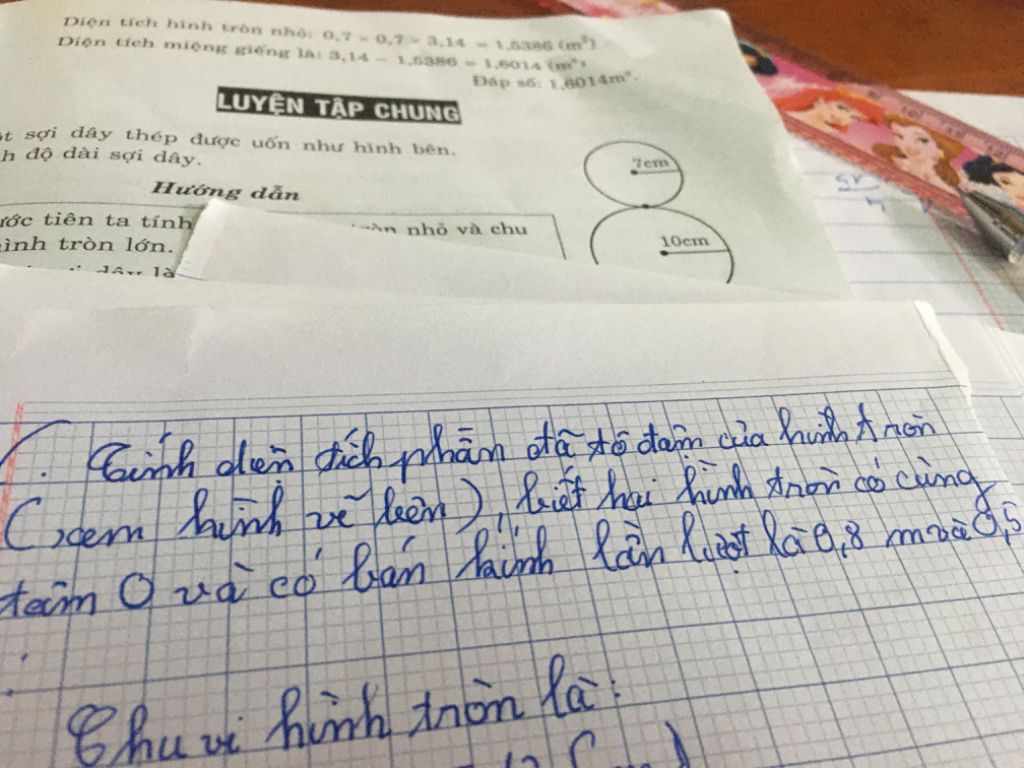 Diện tích hình tròn nhỏ: 0,7 × 0,7 × 3,14 = 1,5386 (m²)
Diện tích miệng giếng là: 3,14 - 1,5386 = 1,6014 (m²)
Đáp số: 1,6014m².
LUYỆN TẬP CHUNG
sợi dây thép được uốn như hình bên.
độ dài sợi dây.
7cm
Hướng dẫn
tiên ta tính nhỏ và chu
tròn lớn.
10cm
dây là
Tính diện tích phần đã tô đậm của hình tròn
(xem hình vẽ bên), biết hai hình tròn có cùng
tâm O và có bán kính lần lượt là 0,8 m và 0,5
Chu vi hình tròn là: